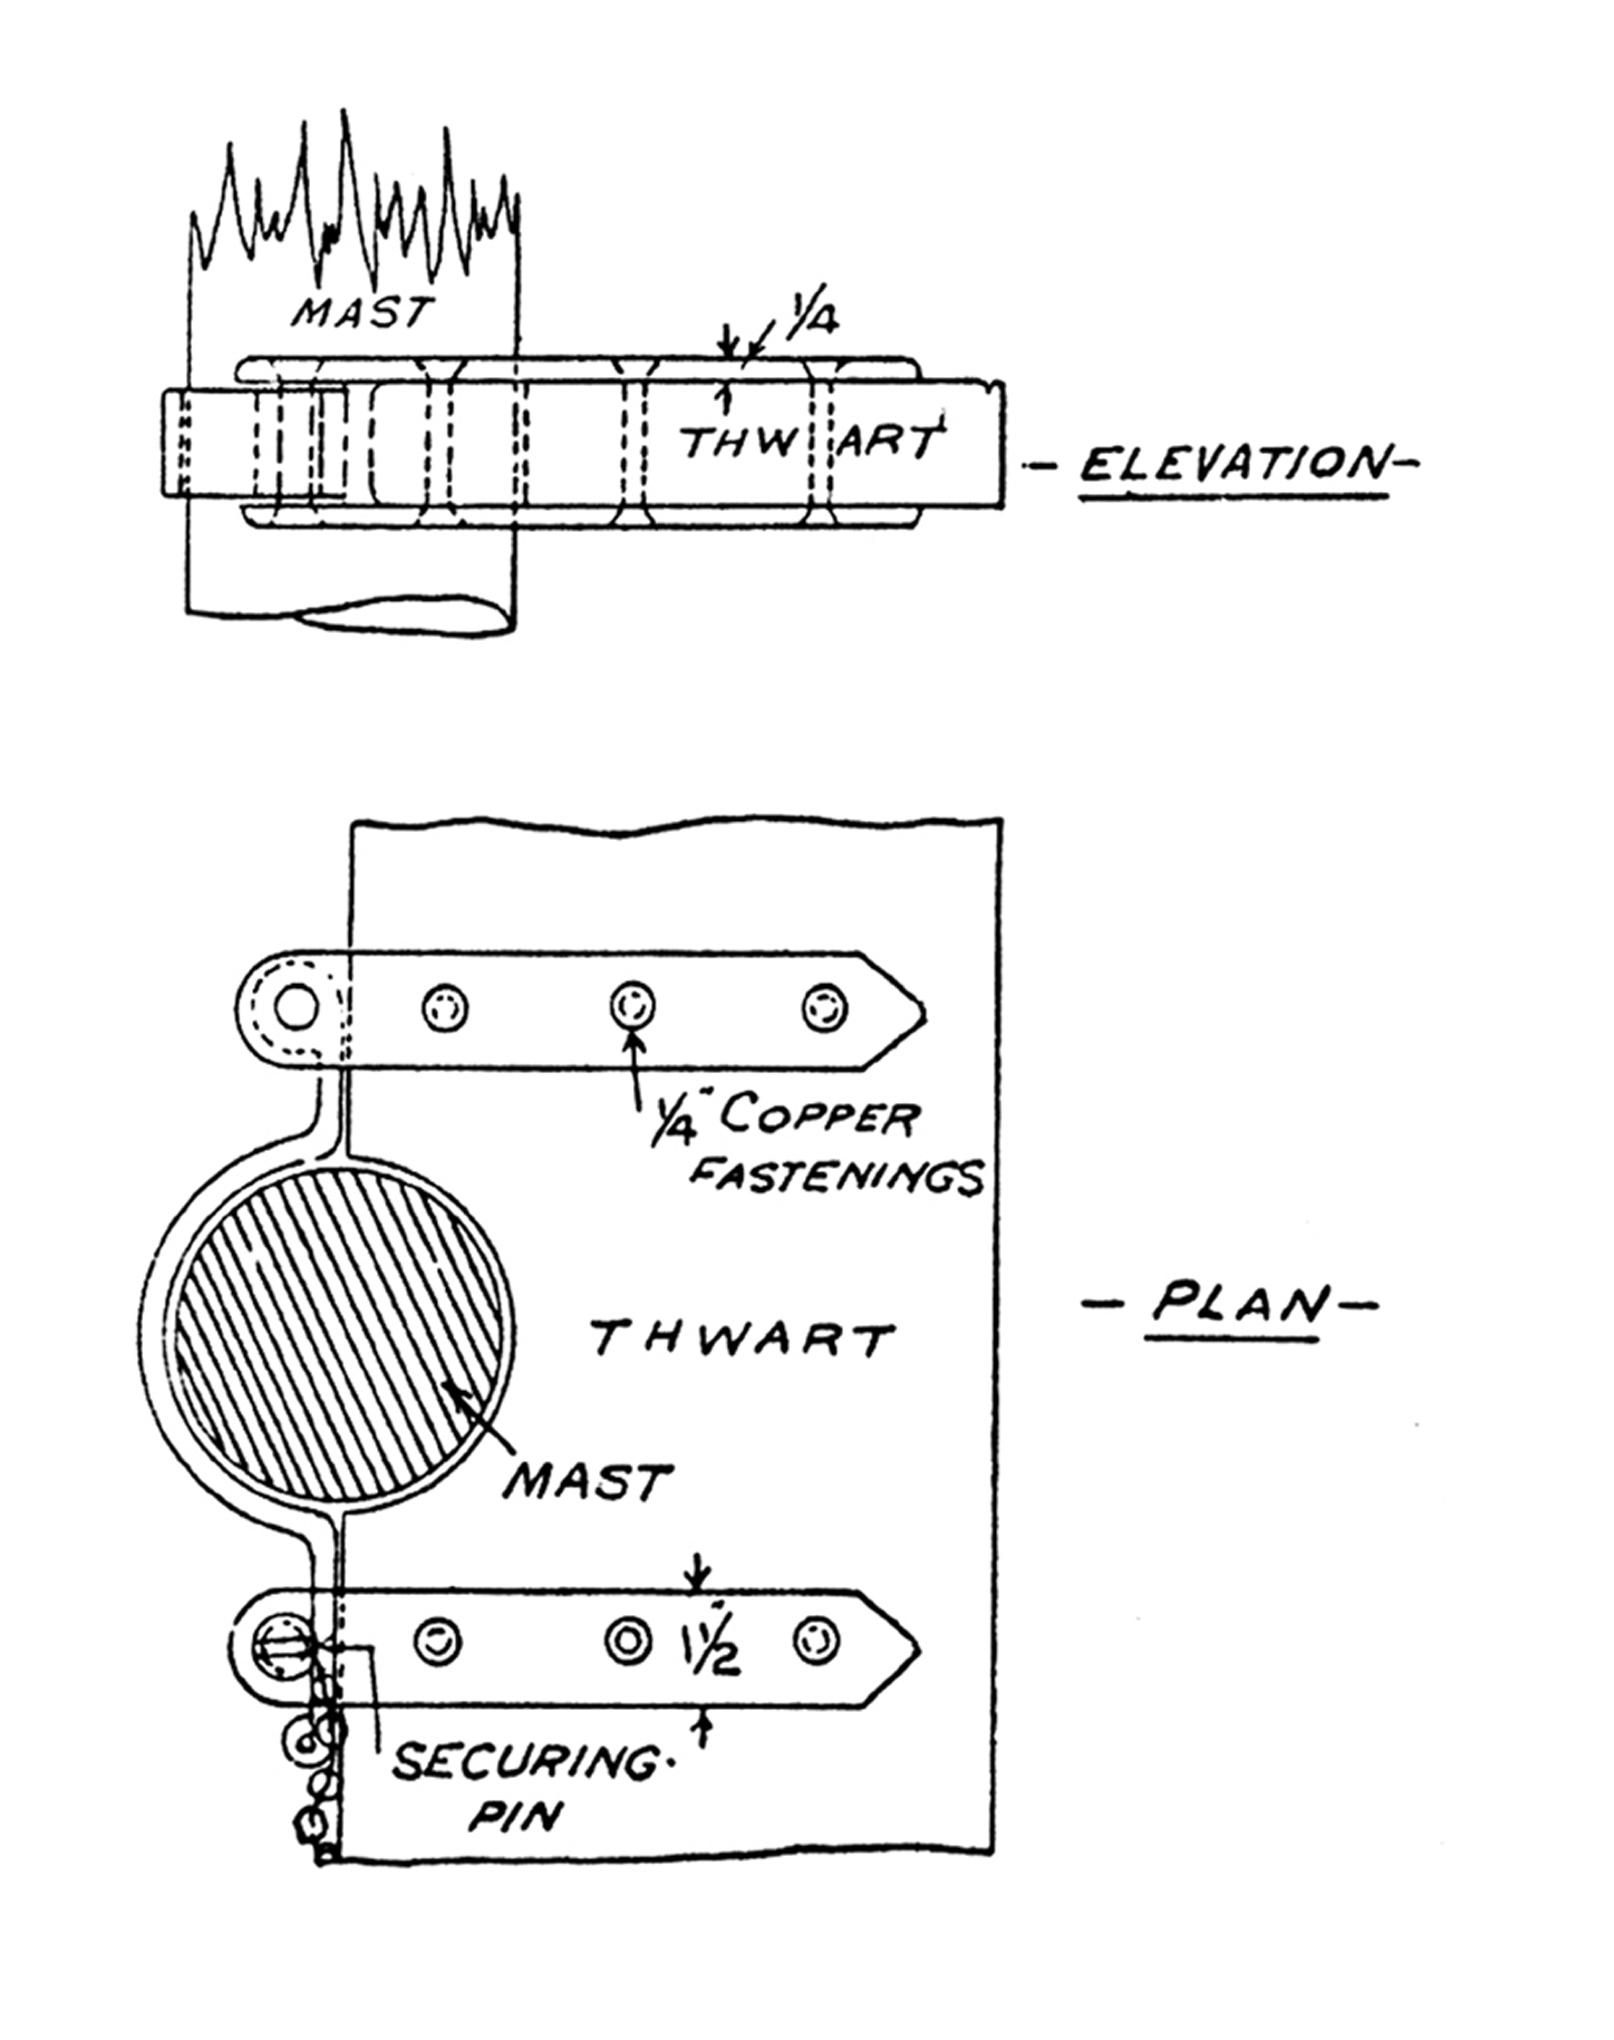 MAST
1/4
THWART
- ELEVATION -
1/4" COPPER
FASTENINGS
THWART
- PLAN -
MAST
1 1/2"
SECURING.
PIN